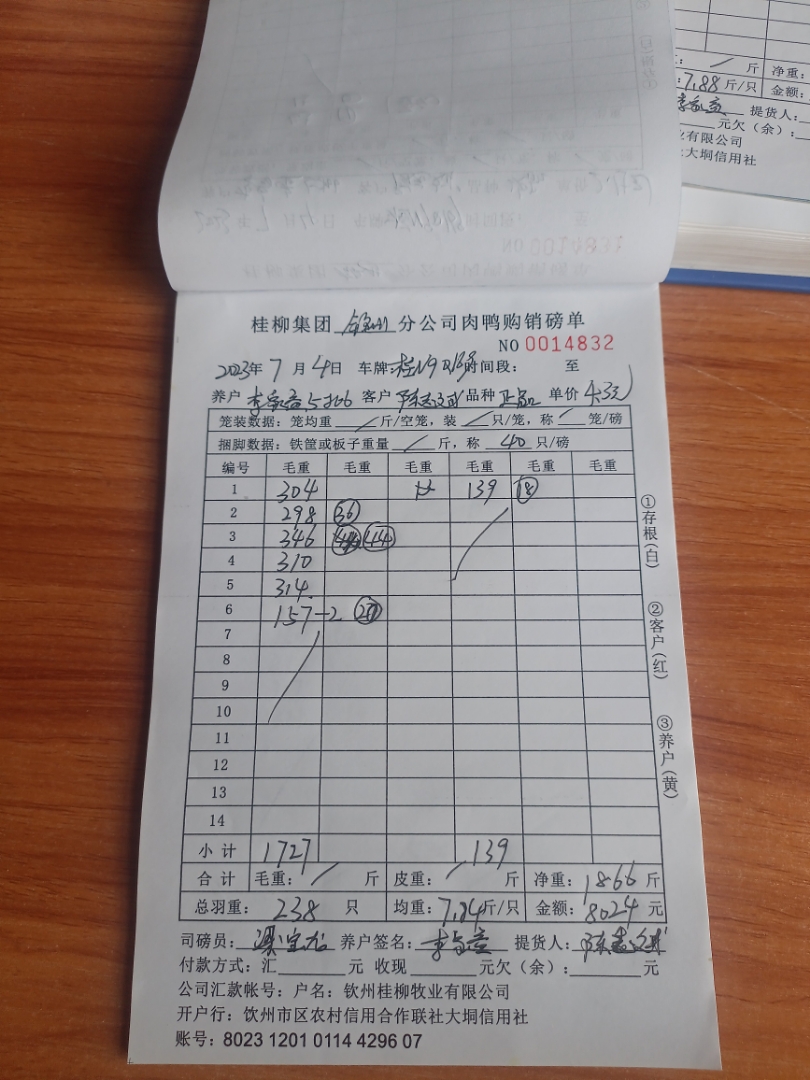 斤 净重：
7.88 斤/只 金额：
提货人：
元欠（余）：
业有限公司
社大垌信用社
桂柳集团 钦州 分公司肉鸭购销磅单
NO 0014832
2023年 7 月 4日 车牌：桂N9 时间段： 至
养户 客户 品种 正品 单价 4.3元
笼装数据：笼均重 / 斤/空笼，装 / 只/笼，称 / 笼/磅
捆脚数据：铁筐或板子重量 / 斤，称 40 只/磅
编号 毛重 毛重 毛重 毛重 毛重 毛重
1 304 139 18
2 298 36
3 346 44
4 310
5 314
6 157-2
7
8
9
10
11
12
13
14
小计 1727 139
合计 毛重： / 斤 皮重： / 斤 净重：1866 斤
总羽重： 238 只 均重：7.84斤/只 金额：8024 元
司磅员： 养户签名： 提货人：
付款方式：汇 元 收现 元欠（余）： 元
公司汇款帐号：户名：钦州桂柳牧业有限公司
开户行：饮州市区农村信用合作联社大垌信用社
账号：8023 1201 0114 4296 07
①存根（白）
②客户（红）
③养户（黄）